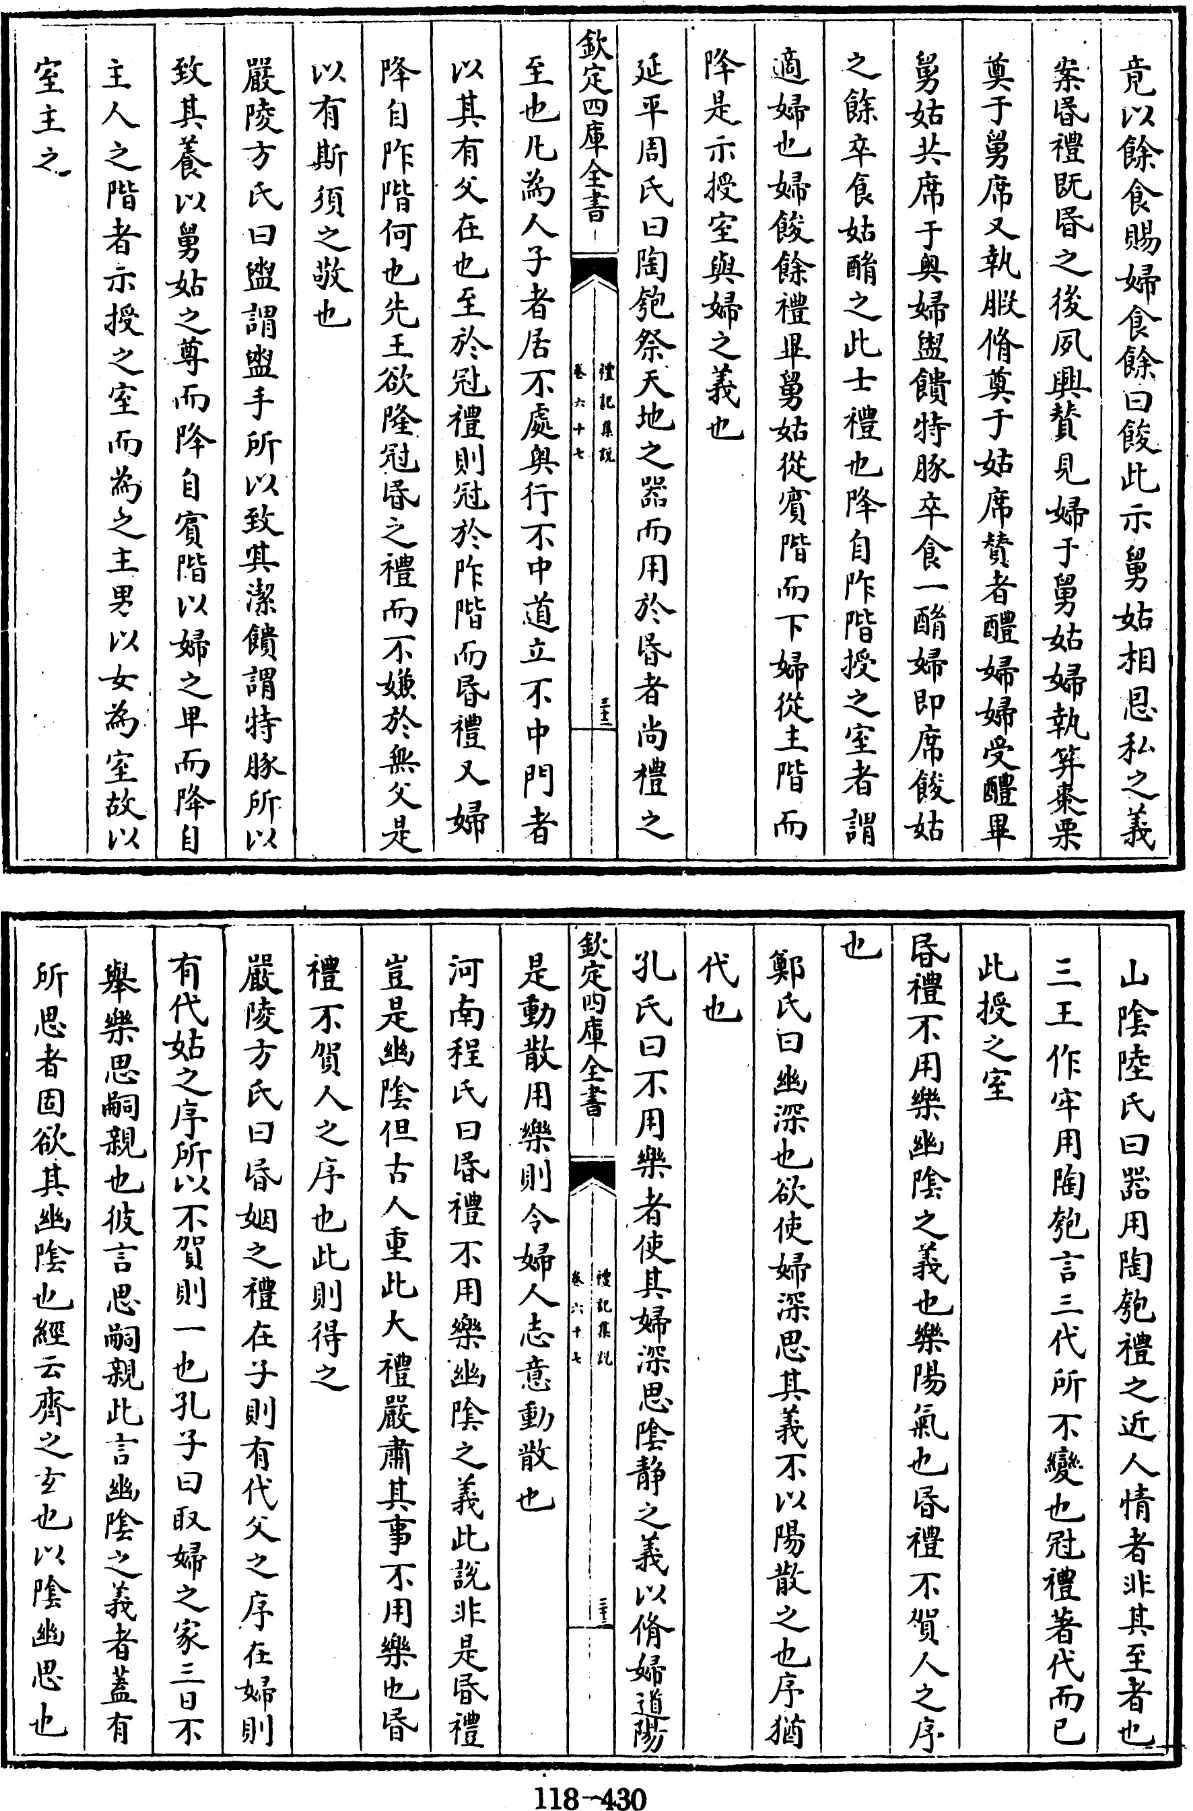 竟以餘食賜婦食餘曰餕此示舅姑相恩私之義
案昏禮既昏之後夙興贊見婦于舅姑婦執笲棗栗
奠于舅席又執腶脩奠于姑席贊者醴婦婦受醴畢
舅姑共席于奥婦盥饋特豚卒食一酳婦即席餕姑
之餘卒食姑酳之此士禮也降自阼階授之室者謂
適婦也婦餕餘禮畢舅姑從賓階而下婦從主階而
降是示授室與婦之義也
延平周氏曰陶匏祭天地之器而用於昏者尚禮之
欽定四庫全書
禮記集説
卷六十七
三十二
至也凡為人子者居不處奥行不中道立不中門者
以其有父在也至於冠禮則冠於阼階而昏禮又婦
降自阼階何也先王欲隆冠昏之禮而不嫌於無父是
以有斯須之敬也
嚴陵方氏曰盥謂盥手所以致其潔饋謂特豚所以
致其養以舅姑之尊而降自賓階以婦之卑而降自
主人之階者示授之室而為之主男以女為室故以
室主之
山陰陸氏曰器用陶匏禮之近人情者非其至者也
三王作牢用陶匏言三代所不變也冠禮著代而已
此授之室
昏禮不用樂幽陰之義也樂陽氣也昏禮不賀人之序
也
鄭氏曰幽深也欲使婦深思其義不以陽散之也序猶
代也
孔氏曰不用樂者使其婦深思陰靜之義以脩婦道陽
欽定四庫全書
禮記集説
卷六十七
三十三
是動散用樂則令婦人志意動散也
河南程氏曰昏禮不用樂幽陰之義此説非是昏禮
豈是幽陰但古人重此大禮嚴肅其事不用樂也昏
禮不賀人之序也此則得之
嚴陵方氏曰昏姻之禮在子則有代父之序在婦則
有代姑之序所以不賀則一也孔子曰取婦之家三日不
舉樂思嗣親也彼言思嗣親此言幽陰之義者蓋有
所思者固欲其幽陰也經云齊之玄也以陰幽思也
118-430